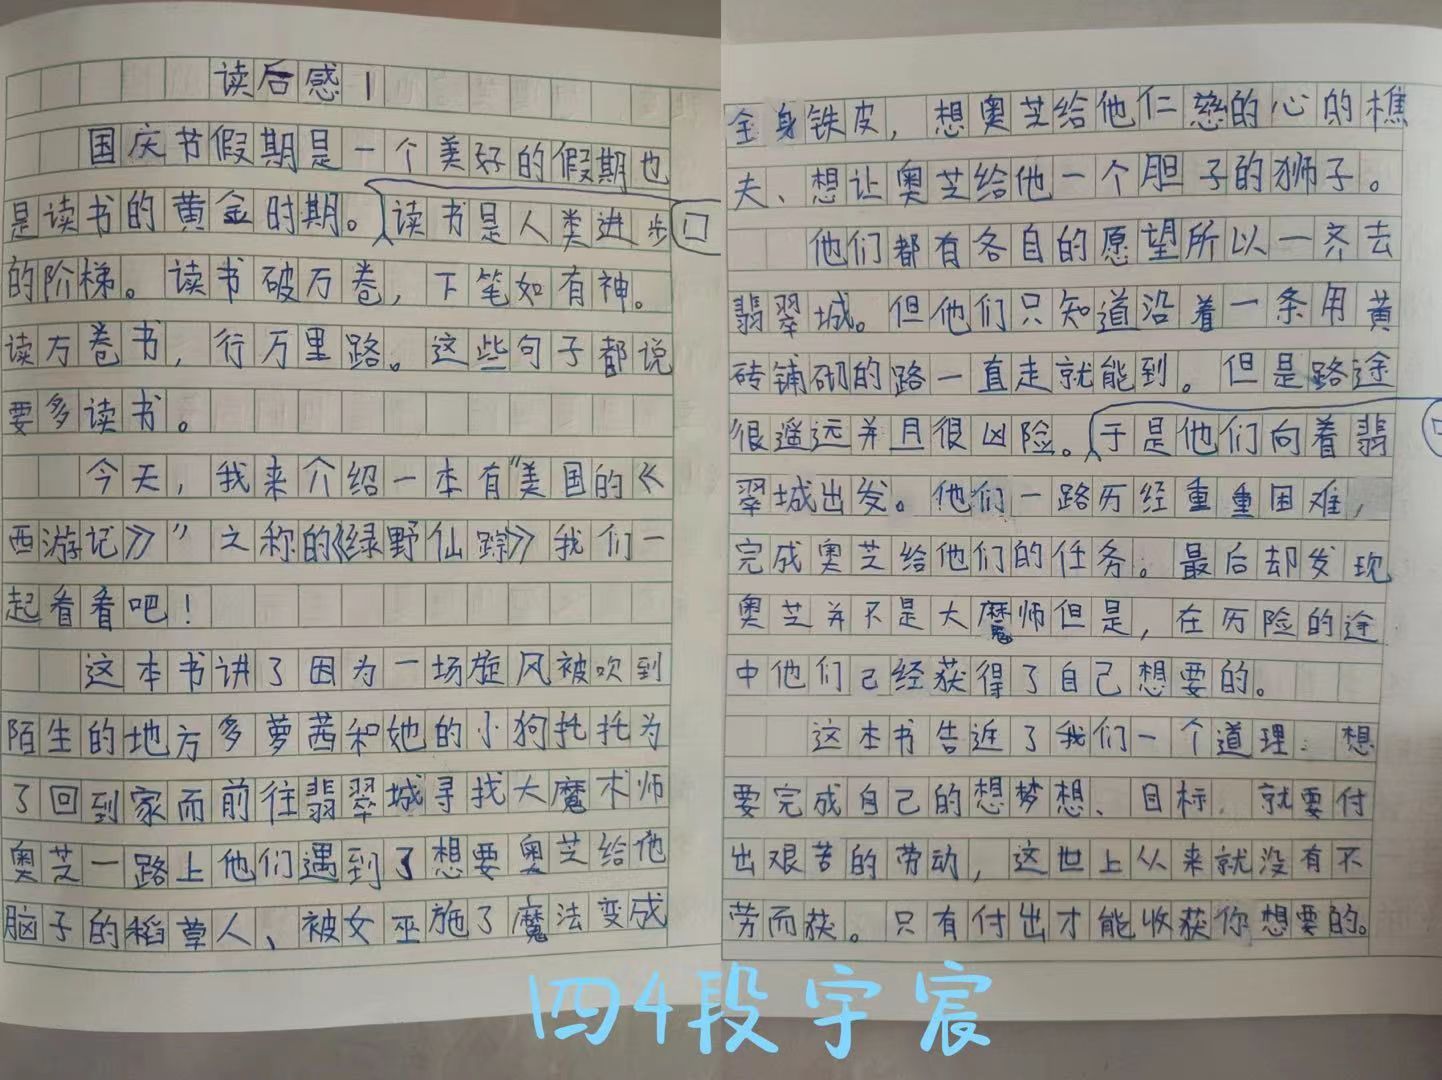 读后感1
国庆节假期是一个美好的假期也
是读书的黄金时期。读书是人类进步
的阶梯。读书破万卷，下笔如有神。
读万卷书，行万里路。这些句子都说
要多读书。
今天，我来介绍一本有“美国的《
西游记》”之称的《绿野仙踪》我们一
起看看吧！
这本书讲了因为一场旋风被吹到
陌生的地方多萝茜和她的小狗托托为
了回到家而前往翡翠城寻找大魔术师
奥芝一路上他们遇到了想要奥芝给他
脑子的稻草人、被女巫施了魔法变成
全身铁皮，想奥芝给他仁慈的心的樵
夫、想让奥芝给他一个胆子的狮子。
他们都有各自的愿望所以一齐去
翡翠城。但他们只知道沿着一条用黄
砖铺砌的路一直走就能到。但是路途
很遥远并且很凶险。于是他们向着翡
翠城出发。他们一路历经重重困难，
完成奥芝给他们的任务。最后却发现
奥芝并不是大魔师但是，在历险的途
中他们己经获得了自己想要的。
这本书告近了我们一个道理：想
要完成自己的想梦想、目标，就要付
出艰苦的劳动，这世上从来就没有不
劳而获。只有付出才能收获你想要的。
四4段宇宸